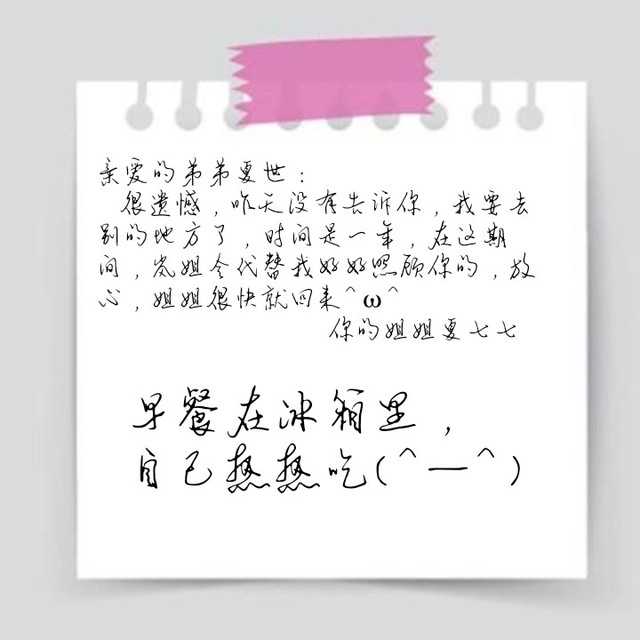 亲爱的弟弟夏世：
很遗憾，昨天没有告诉你，我要去
别的地方了，时间是一年，在这期
间，岚姐会代替我好好照顾你的，放
心，姐姐很快就回来^ω^
你的姐姐夏七七
早餐在冰箱里，
自己热热吃(^—^)